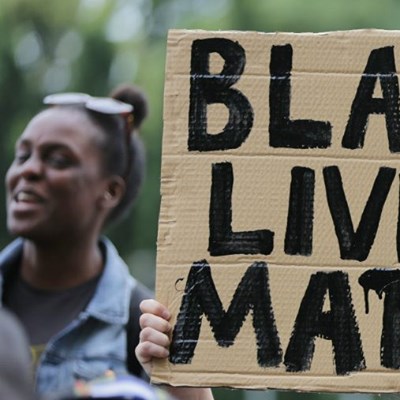 BLA
LIV
MAT